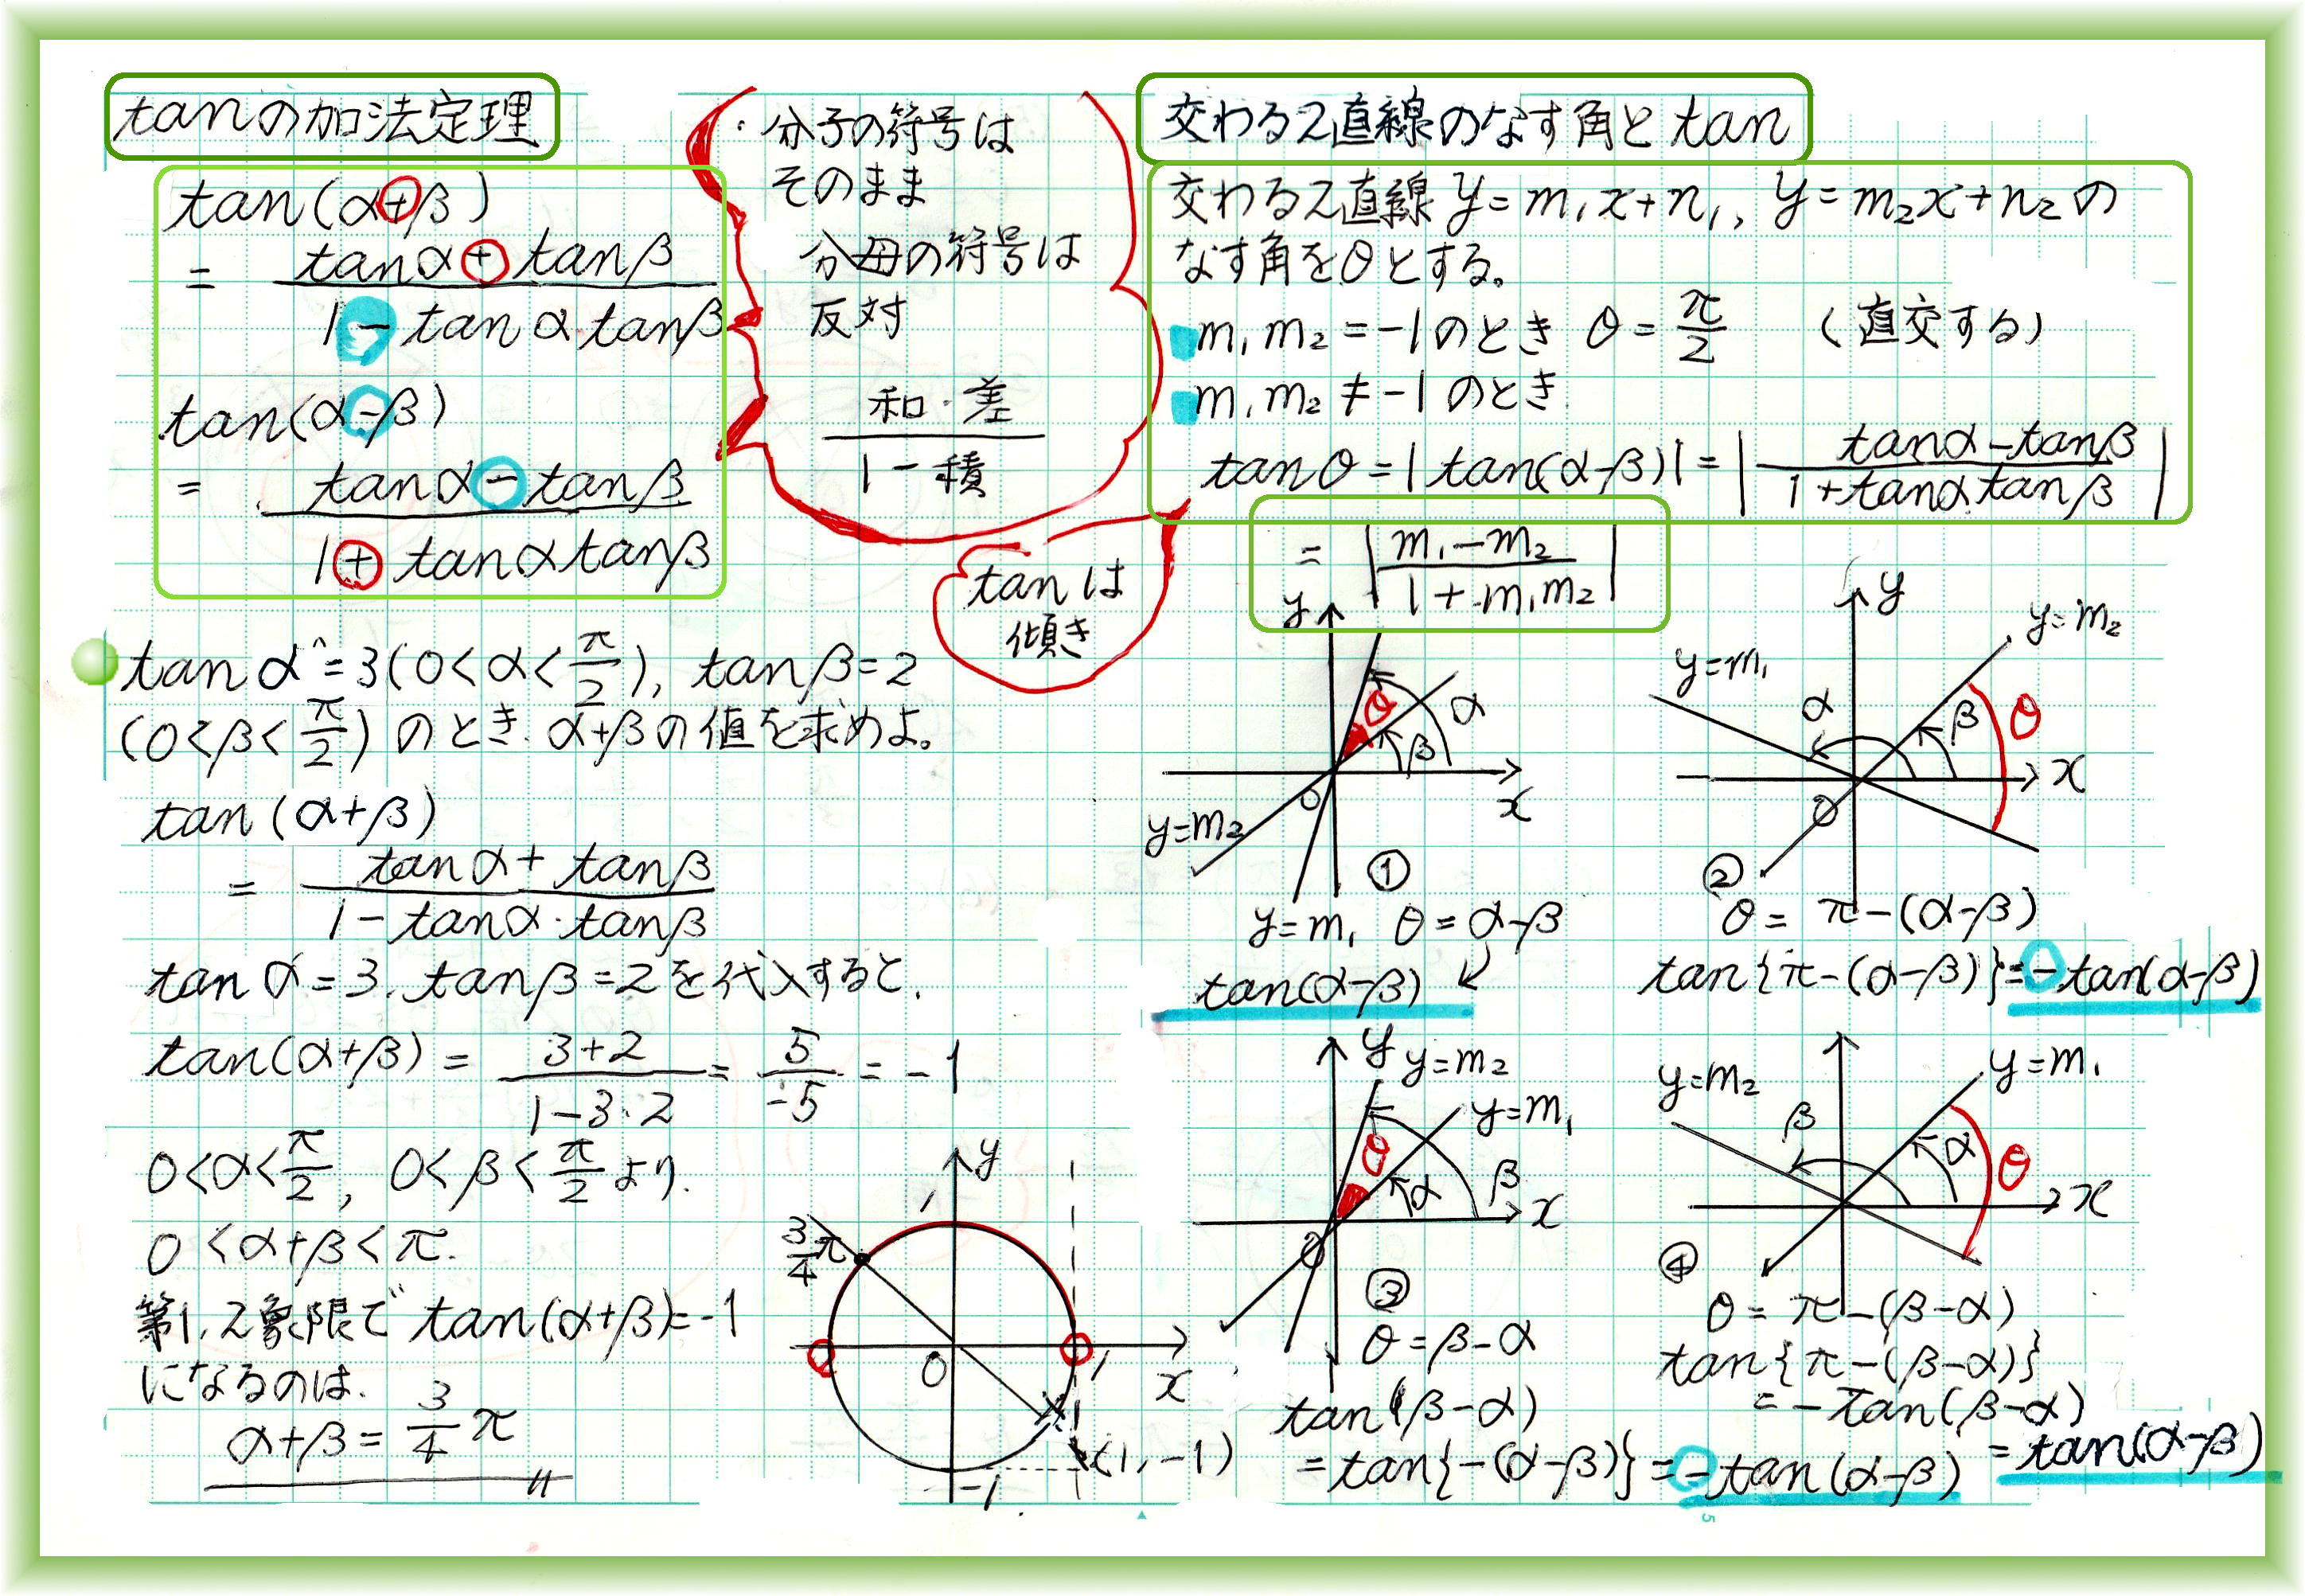 tanの加法定理
tan(α+β)
= (tanα + tanβ)/(1 - tanα tanβ)
tan(α-β)
= (tanα - tanβ)/(1 + tanα tanβ)
・分子の符号は
そのまま
分母の符号は
反対
和・差
1-積
tanは
傾き
tanα=3(0<α<π/2), tanβ=2
(0<β<π/2)のとき. α+βの値を求めよ。
tan(α+β)
= (tanα+tanβ)/(1-tanα・tanβ)
tanα=3, tanβ=2を代入すると,
tan(α+β) = (3+2)/(1-3・2) = 5/-5 = -1
0<α<π/2, 0<β<π/2 より.
0<α+β<π.
第1,2象限でtan(α+β)=-1
になるのは.
α+β=3/4π
y
1
3/4π
0
1
x
-1
(1,-1)
交わる2直線のなす角とtan
交わる2直線 y=m₁x+n₁, y=m₂x+n₂の
なす角をθとする。
m₁m₂=-1のとき θ=π/2 (直交する)
m₁m₂≠-1のとき
tanθ=|tan(α-β)|=|(tanα-tanβ)/(1+tanαtanβ)|
=|(m₁-m₂)/(1+m₁m₂)|
y
θ
α
β
0
x
y=m₂
①
y=m₁ θ=α-β
tan(α-β)
y
y=m₂
y=m₁
α
β
θ
x
0
②
θ=π-(α-β)
tan{π-(α-β)}=-tan(α-β)
y
y=m₂
y=m₁
θ
α
β
x
0
③
θ=β-α
tan(β-α)
=tan{-(α-β)}=-tan(α-β)
y=m₂
y=m₁
β
α
θ
x
④
θ=π-(β-α)
tan{π-(β-α)}
=-tan(β-α)
=tan(α-β)